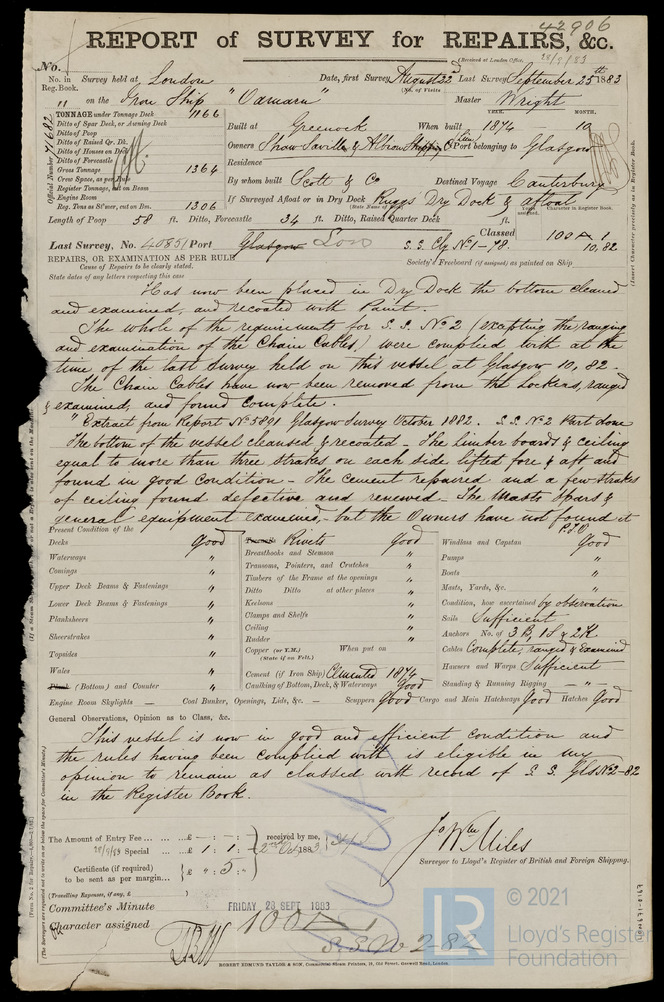 42906
REPORT of SURVEY for REPAIRS, &c.
(Received at London Office, 28/9/83
No.
No. in Reg. Book. Survey held at London Date, first Survey August 22nd Last Survey September 25th 1883
(No. of Visits
" on the Iron Ship "Oamaru" Master Wright
TONNAGE under Tonnage Deck 1166
Ditto of Spar Deck, or Awning Deck
Ditto of Poop
Ditto of Raised Qr. Dk.
Ditto of Houses on Deck
Ditto of Forecastle
Gross Tonnage 1364
Crew Space, as per Rule
Register Tonnage, cut on Beam
Engine Room
Reg. Tons as St'mer, cut on Bm. 1306
Official Number 71682
YEAR. MONTH.
Built at Greenock When built 1874 10
Owners Shaw Savill & Albion Shipping Co Lim Port belonging to Glasgow
Residence
By whom built Scott & Co Destined Voyage Canterbury
If Surveyed Afloat or in Dry Dock Dry Dock & afloat
(State Name of Dock.)
Length of Poop 58 ft. Ditto, Forecastle 34 ft. Ditto, Raised Quarter Deck ft.
Years assigned Character in Register Book.
(Insert Character precisely as in Register Book.
Classed 100 A 1
10,82
Last Survey, No. 40851 Port Glasgow Lon S.S. Gly No1-78
REPAIRS, OR EXAMINATION AS PER RULE
Society's Freeboard (if assigned) as painted on Ship
Cause of Repairs to be clearly stated.
State dates of any letters respecting this case
Has now been placed in Dry Dock the bottom cleaned
and examined, and recoated with Paint.
The whole of the requirements for S.S. No 2 (excepting the ranging
and examination of the Chain Cables,) were complied with at the
time of the last Survey held on this vessel at Glasgow 10, 82 -
The Chain Cables have now been removed from the Lockers, ranged
& examined, and found complete.
"Extract from Report No 5891 Glasgow Survey October 1882. S.S. No 2 Part done
The bottom of the vessel cleansed & recoated - The limber boards & ceiling
equal to more than three strakes on each side lifted fore & aft and
found in good condition - The cement repaired and a few strakes
of ceiling found defective and renewed - The Masts Spars &
general equipment examined, - but the Owners have not found it
P.T.O.
Present Condition of the
Decks Good
Waterways "
Comings "
Upper Deck Beams & Fastenings "
Lower Deck Beams & Fastenings "
Planksheers "
Sheerstrakes "
Topsides "
Wales "
Plank (Bottom) and Counter "
Engine Room Skylights — Coal Bunker, Openings, Lids, &c. — Scuppers Good Cargo and Main Hatchways Good Hatches Good
Treenails Rivets Good
Breasthooks and Stemson "
Transoms, Pointers, and Crutches "
Timbers of the Frame at the openings "
Ditto Ditto at other places "
Keelsons "
Clamps and Shelfs "
Ceiling "
Rudder "
Copper (or Y.M.) When put on
(State if on Felt.)
Cement (if Iron Ship) Cemented 1874
Caulking of Bottom, Deck, & Waterways Good
Windlass and Capstan Good
Pumps "
Boats "
Masts, Yards, &c. "
Condition, how ascertained by observation
Sails Sufficient
Anchors No. of 3 B, 1 S & 2 K
Cables Complete, ranged & examined
Hawsers and Warps Sufficient
Standing & Running Rigging — " —
General Observations, Opinion as to Class, &c.
This vessel is now in good and efficient condition and
the rules having been complied with is eligible in my
opinion to remain as classed with record of S.S. Gls No2-82
in the Register Book.
The Amount of Entry Fee ... ... £ - : - : -
28/9/83 Special ... ... £ 1 : 1 : -
received by me, 2nd Oct 1883
Certificate (if required) to be sent as per margin... £ " : 5 : -
(Travelling Expenses, if any, £ )
Jo Wm Miles
Surveyor to Lloyd's Register of British and Foreign Shipping.
Committee's Minute FRIDAY 28 SEPT 1883
Character assigned 100 A 1
S.S. No 2-82
ROBERT EDMUND TAYLOR & SON, Commercial Steam Printers, 19, Old Street, Goswell Road, London.
LR
© 2021
Lloyd's Register
Foundation